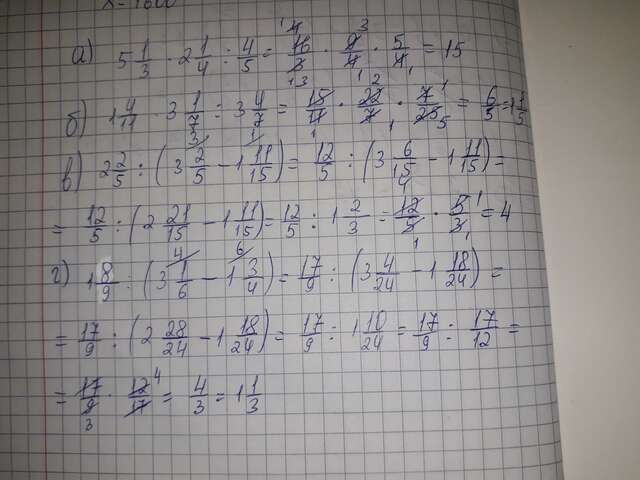 х = 1600
а) 5 1/3 · 2 1/4 : 4/5 = 16/3 · 9/4 · 5/4 = 15
б) 1 4/11 · 3 1/7 : 3 4/7 = 15/11 · 22/7 · 7/25 = 6/5 = 1 1/5
в) 2 2/5 : (3 2/5 − 1 11/15) = 12/5 : (3 6/15 − 1 11/15) =
= 12/5 : (2 21/15 − 1 11/15) = 12/5 : 1 2/3 = 12/5 · 5/3 = 4
г) 1 8/9 : (3 1/6 − 1 3/4) = 17/9 : (3 4/24 − 1 18/24) =
= 17/9 : (2 28/24 − 1 18/24) = 17/9 : 1 10/24 = 17/9 : 17/12 =
= 17/9 · 12/17 = 4/3 = 1 1/3